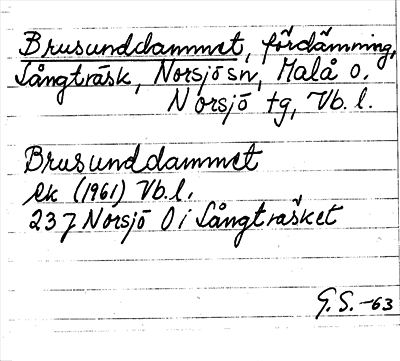 Brusunddammet, fördämning,
Långträsk, Norsjö sn, Malå o.
Norsjö tg, Vb. l.
Brusunddammet
ek (1961) Vb. l.
237 Norsjö O i Långträsket
G. S. -63